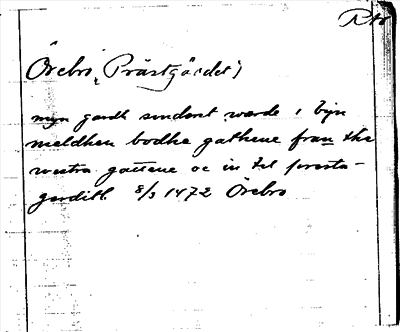 Örebro, Prästgärdet)
myn gardh sundast warde i byn
meldhen bodhe gathene fran the
westra gatene oc in til presta-
gerdith 8/3 1472 Örebro